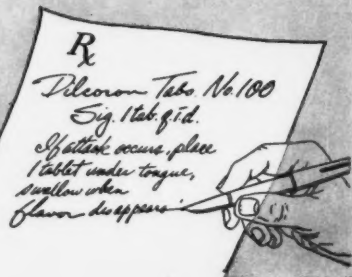 Rx
Dilcoron Tabs No. 100
Sig. 1 tab. q.i.d.
If attack occurs, place
1 tablet under tongue,
swallow when
flavor disappears.